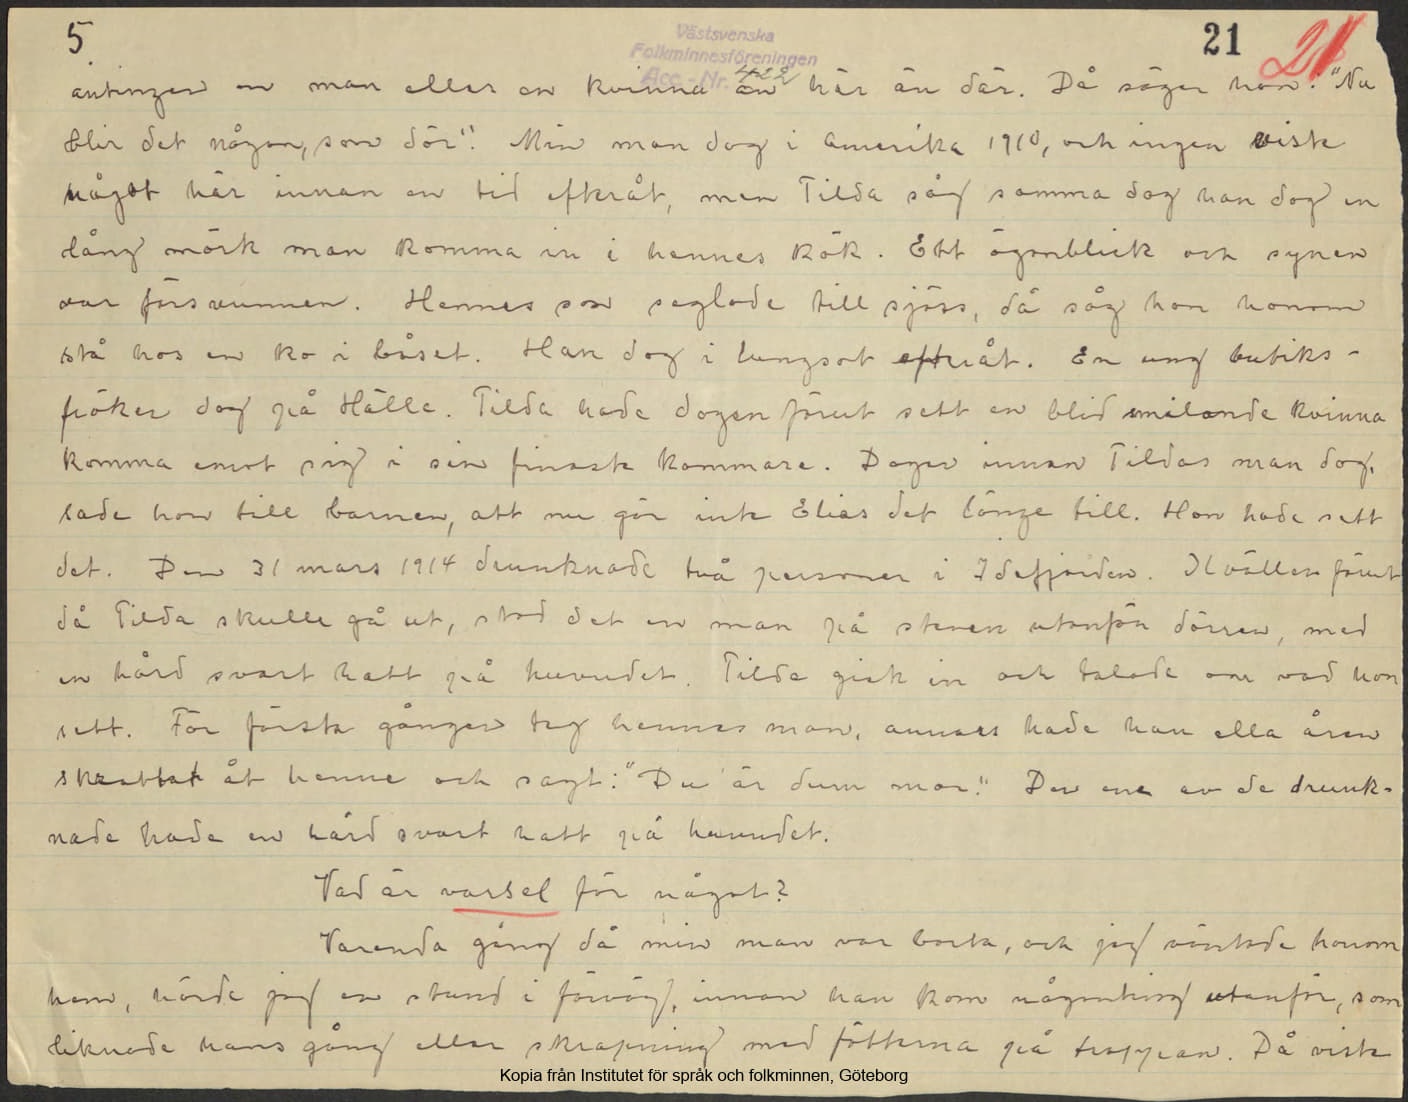 5
21
21
Västsvenska
Folkminnesföreningen
Acc.-Nr. 422
antingen en man eller en kvinna än här än där. Då säger hon: "Nu
blir det någon, som dör". Min man dog i Amerika 1910, och ingen viste
något här innan en tid efteråt, men Tilda såg samma dag han dog en
lång mörk man komma in i hennes kök. Ett ögonblick och synen
var försvunnen. Hennes son seglade till sjöss, då såg hon honom
stå hos en ko i båset. Han dog i lungsot efteråt. En ung butiks-
fröken dog på Hälle. Tilda hade dagen förut sett en blid smilande kvinna
komma emot sig i sin finaste kammare. Dagen innan Tildas man dog,
sade hon till barnen, att nu gör inte Elias det länge till. Hon hade sett
det. Den 31 mars 1914 drunknade två personer i Idefjorden. Kvällen förut
då Tilda skulle gå ut, stod det en man på stenen utanför dörren, med
en hård svart hatt på huvudet. Tilda gick in och talade om vad hon
sett. För första gången teg hennes man, annars hade han alla åren
skrattat åt henne och sagt: "Du är dum mor". Den ene av de drunk-
nade hade en hård svart hatt på huvudet.
Vad är varsel för något?
Varenda gång då min man var borta, och jag väntade honom
hem, hörde jag en stund i förväg, innan han kom någonting utanför, som
liknade hans gång eller skrapning med fötterna på trappan. Då viste
Kopia från Institutet för språk och folkminnen, Göteborg